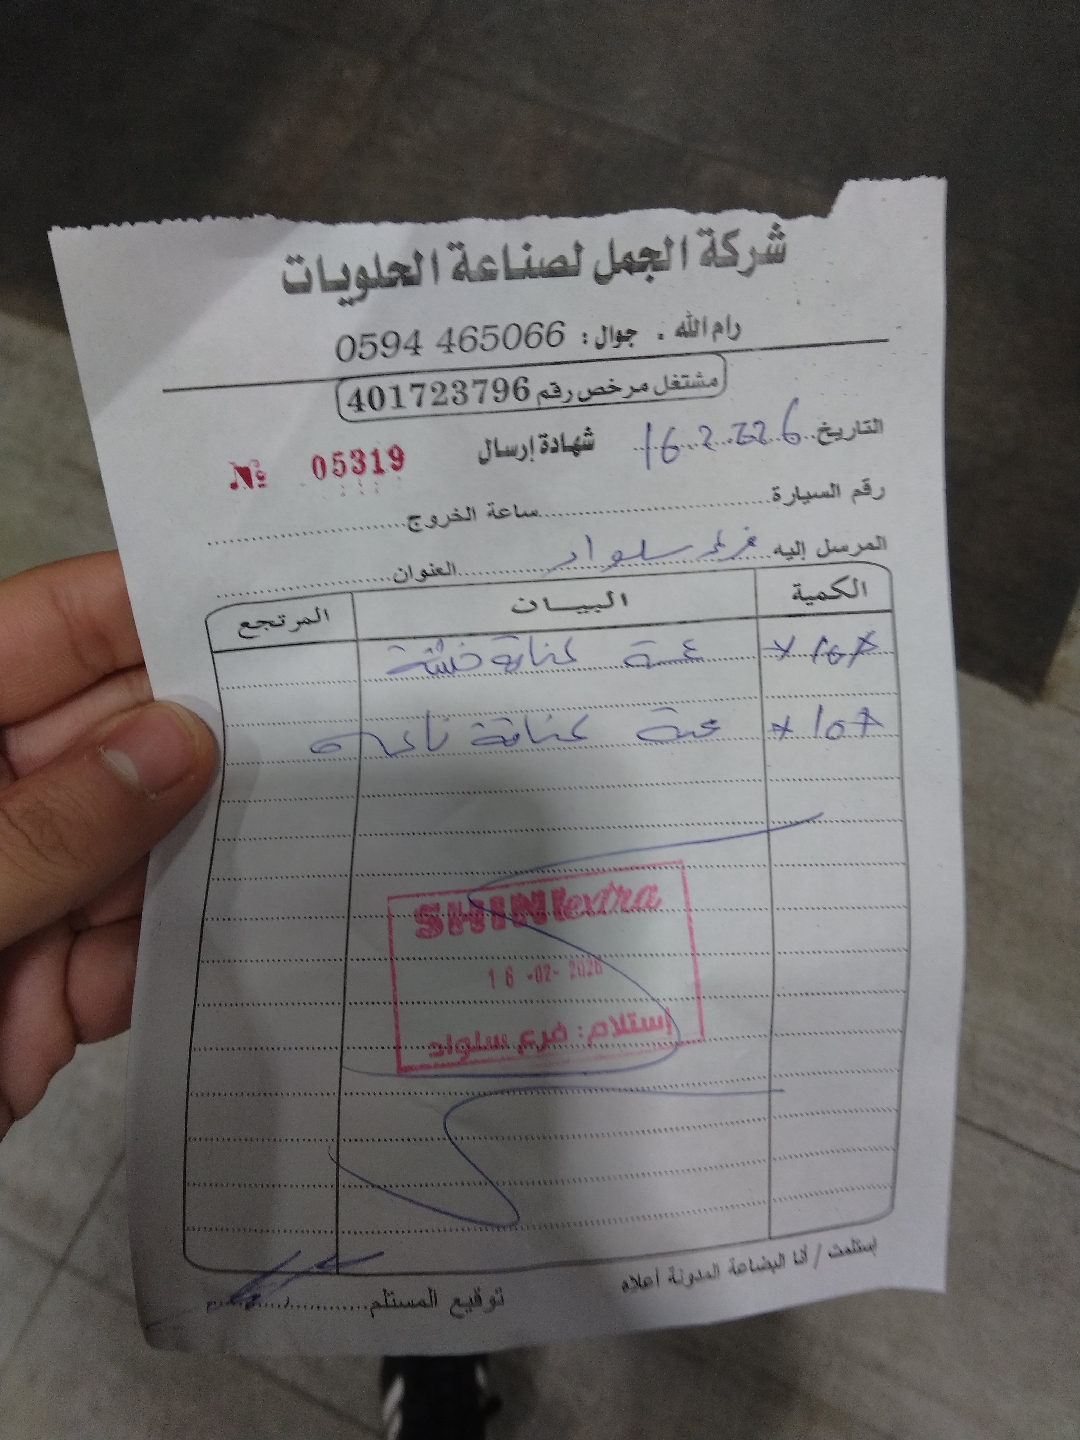 شركة الجمل لصناعة الحلويات
رام الله . جوال : 0594 465066
مشتغل مرخص رقم 401723796
التاريخ 16.2.2026
شهادة إرسال
№ 05319
رقم السيارة ساعة الخروج
المرسل إليه فرع سلواد العنوان
الكمية البيــان المرتجع
خشنة
ناعمة
SHINI extra
16 -02- 2026
إستلام: فرع سلواد
إستلمت / أنا البضاعة المدونة أعلاه
توقيع المستلم